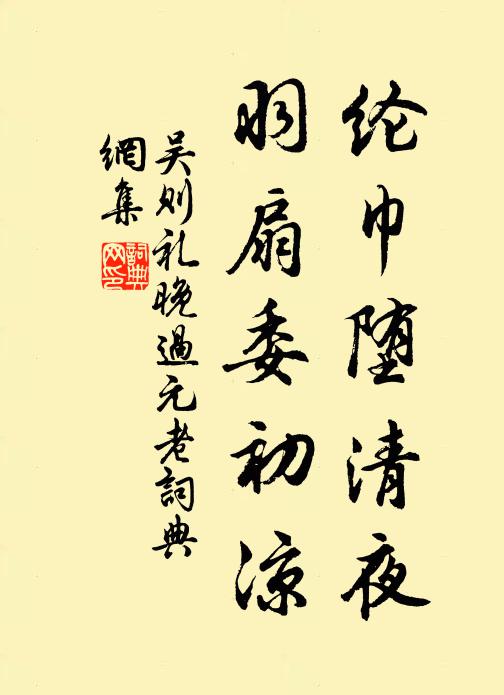 纶巾堕清夜
羽扇委初凉
吴则礼晚過元老詞典
網集
詞典
网印